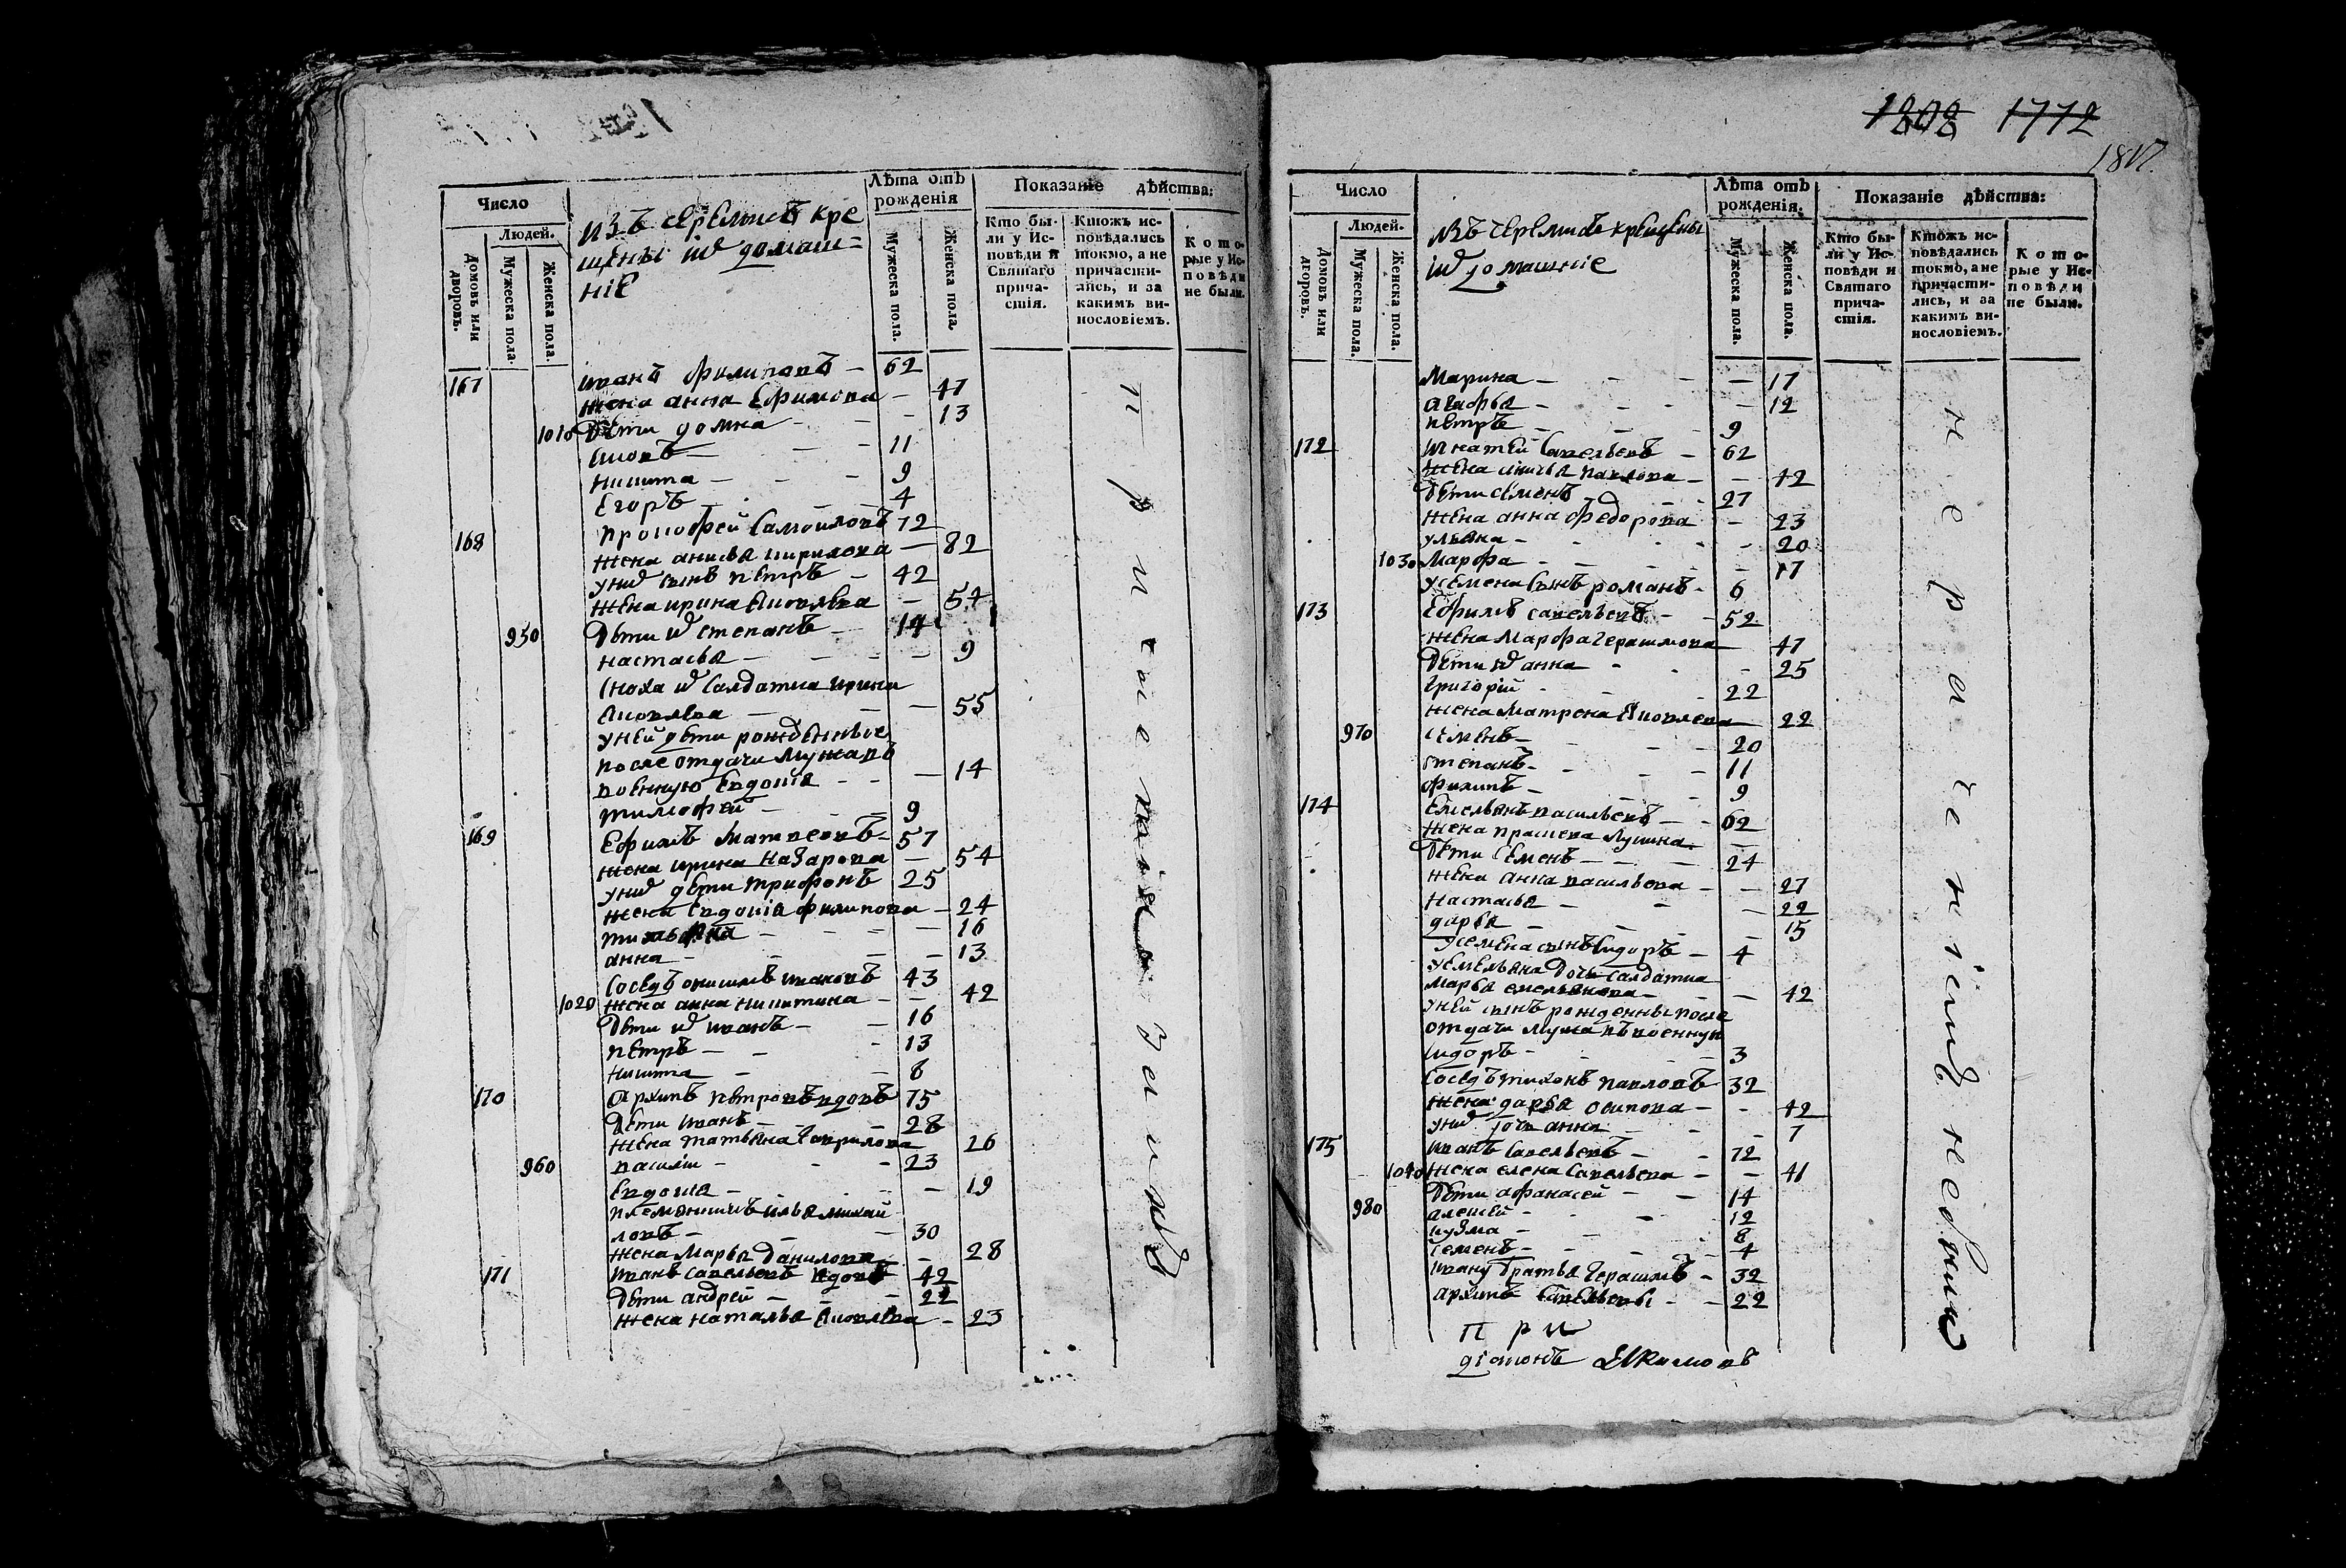 1808 1772
1817.
Число
Людей.
Домовъ или дворовъ.
Мужеска пола.
Женска пола.
изъ черемисъ кре
щены ихъ домаш=
ніе
Лѣта отъ рожденія
Мужеска пола.
Женска пола.
Показаніе дѣйства:
Кто бы-
ли у Ис-
повѣди и
Святаго
прича-
стія.
Ктожъ ис-
повѣдались
токмо, а не
причасти-
лись, и за
какимъ ви-
нословіемъ.
Кото-
рые у Ис-
повѣди
не были.
167 иванъ филиповъ — 62
жена анна Ефимова — 47
1010 Дѣти домна — 13
11
никита — 9
Егоръ — 4
168 прокофей Самойловъ 72
жена анисья кирилова — 82
у них сынъ петръ — 42
жена ирина Яковлева — 54
950 Дѣти их степанъ — 14
настасья — 9
сноха их салдатка ирина
Яковлева — 55
у ней дѣти рожденные
после отдачи мужа въ
военную Евдокія — 14
тимофей — 9
169 Ефимъ Матвеевъ — 57
жена ирина назарова — 54
у них дѣти трифонъ 25
жена Евдокія филипова — 24
16
анна — 13
Соседъ онисимъ ивановъ 43
1020 жена анна никитина — 42
Дѣти их иванъ — 16
петръ — 13
никита — 8
170 Архипъ петровъ вдовъ 75
Дѣти иванъ — 28
жена татьяна Гаврилова 26
960 василий — 23
Евдокія — 19
племянникъ илья михай
ловъ — 30
жена Марья данилова — 28
171 иванъ савельевъ вдовъ 42
Дѣти андрей — 22
жена наталья Яковлева — 23
Число
Людей.
Домовъ или дворовъ.
Мужеска пола.
Женска пола.
изъ черемисъ крещены
ихъ домашніе
Лѣта отъ рожденія.
Мужеска пола.
Женска пола.
Показаніе дѣйства:
Кто бы-
ли у Ис-
повѣди и
Святаго
прича-
стія.
Ктожъ ис-
повѣдались
токмо, а не
причасти-
лись, и за
какимъ ви-
нословіемъ.
Кото-
рые у Ис-
повѣди
не были.
Марина — 17
агафья — 12
петръ — 9
172 игнатей Савельевъ — 62
жена павлова — 42
Дѣти семенъ 27
жена анна федорова — 23
ульяна — 20
1030 Марфа — 17
у семена сынъ романъ — 6
173 Ефимъ савельевъ — 52
жена Марфа Герасимова 47
Дѣти их анна — 25
григорій — 22
жена Матрона Яковлева 22
970 семенъ — 20
степанъ — 11
филипъ — 9
174 Емельянъ васильевъ — 62
жена —
Дѣти семенъ — 24
жена анна васильева — 27
настасья — 22
дарья — 15
у семена сынъ сидоръ — 4
у емельяна дочь салдатка
марья емельянова — 42
у ней сынъ рожденны после
отдачи мужа въ военную
сидоръ — 3
соседъ тихонъ павловъ 32
жена дарья осипова — 42
у них дочь анна — 7
175 иванъ савельевъ — 72
1040 жена елена савельева — 41
Дѣти афанасей — 14
980 алексей — 12
кузма — 8
семенъ — 4
ивану братья Герасимъ — 32
архипъ савельевы — 22
при
діаконъ